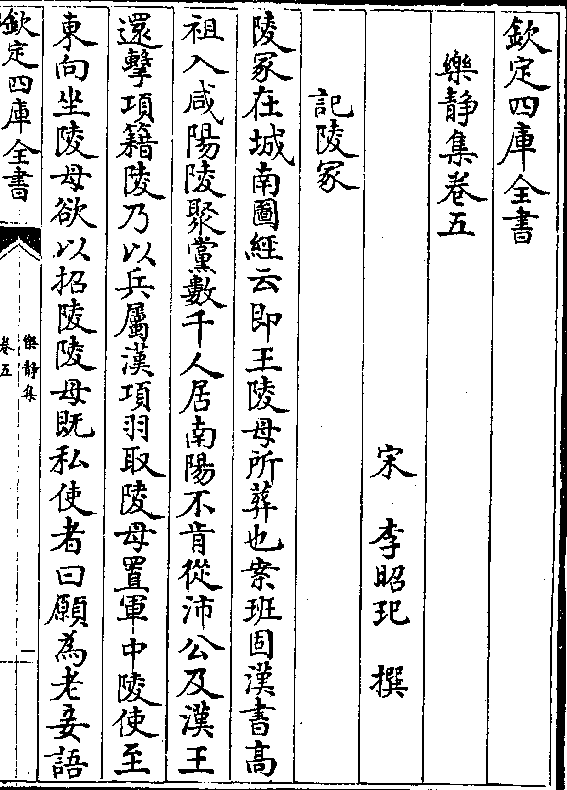 欽定四庫全書
樂静集卷五
宋 李昭玘 撰
記陵冢
陵冢在城南圖經云即王陵母所葬也案班固漢書髙
祖入咸陽陵聚黨數千人居南陽不肯從沛公及漢王
還擊項籍陵乃以兵屬漢項羽取陵母置軍中陵使至
東向坐陵母欲以招陵陵母既私使者曰願為老妾語
欽定四庫全書
樂静集
卷五
一